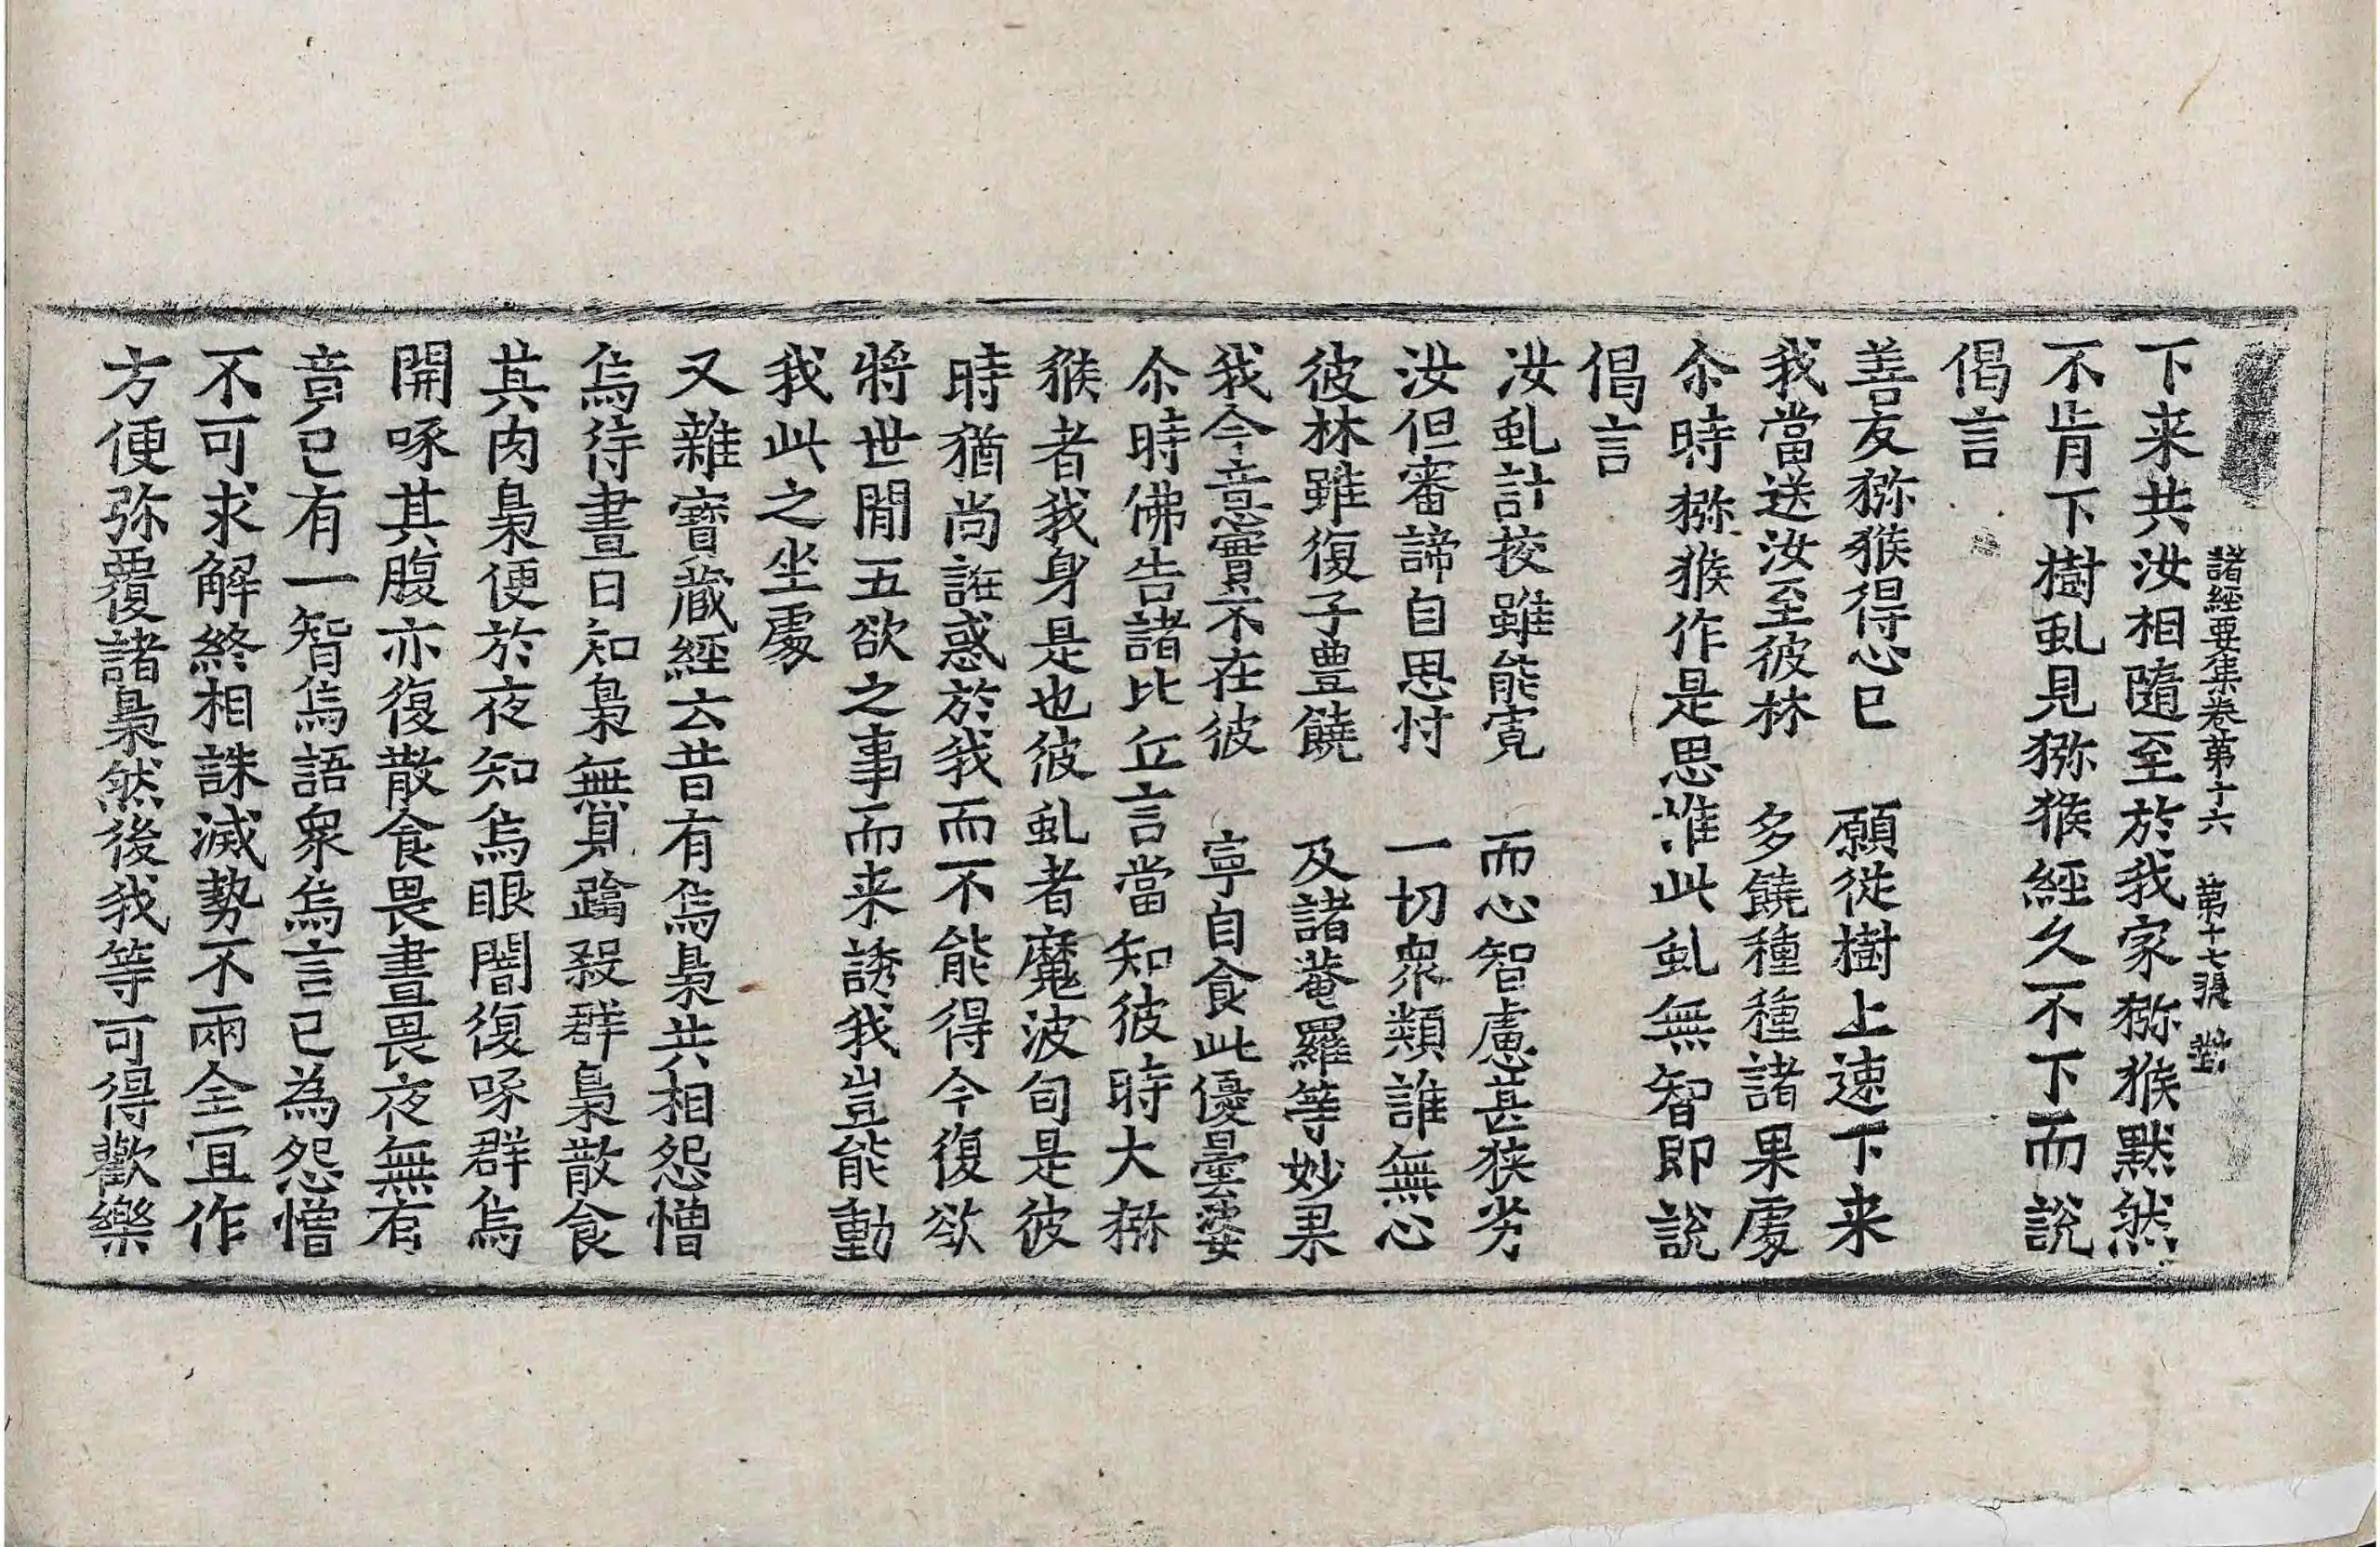 諸經要集卷第十六　第十七張　對
下来共汝相隨至於我家獼猴默然
不肯下樹虬見獼猴經久不下而說
偈言
善友獼猴得心已　願從樹上速下来
我當送汝至彼林　多饒種種諸果處
尒時獼猴作是思惟此虬無智即說
偈言
汝虬計挍雖能寬　而心智慮甚狹劣
汝但審諦自思忖　一切衆類誰無心
彼林雖復子豊饒　及諸菴羅等妙果
我今意實不在彼　寧自食此優曇婆
尒時佛告諸比丘言當知彼時大獼
猴者我身是也彼虬者魔波旬是彼
時猶尚誑惑於我而不能得今復欲
將世閒五欲之事而来誘我豈能動
我此之坐處
又雜寶藏經云昔有烏梟共相怨憎
烏待晝日知梟無見蹹殺群梟散食
其肉梟便於夜知烏眼闇復啄群烏
開啄其腹亦復散食畏晝畏夜無有
竟已有一智烏語衆烏言已為怨憎
不可求解終相誅滅勢不兩全宜作
方便弥覆諸梟然後我等可得歡樂